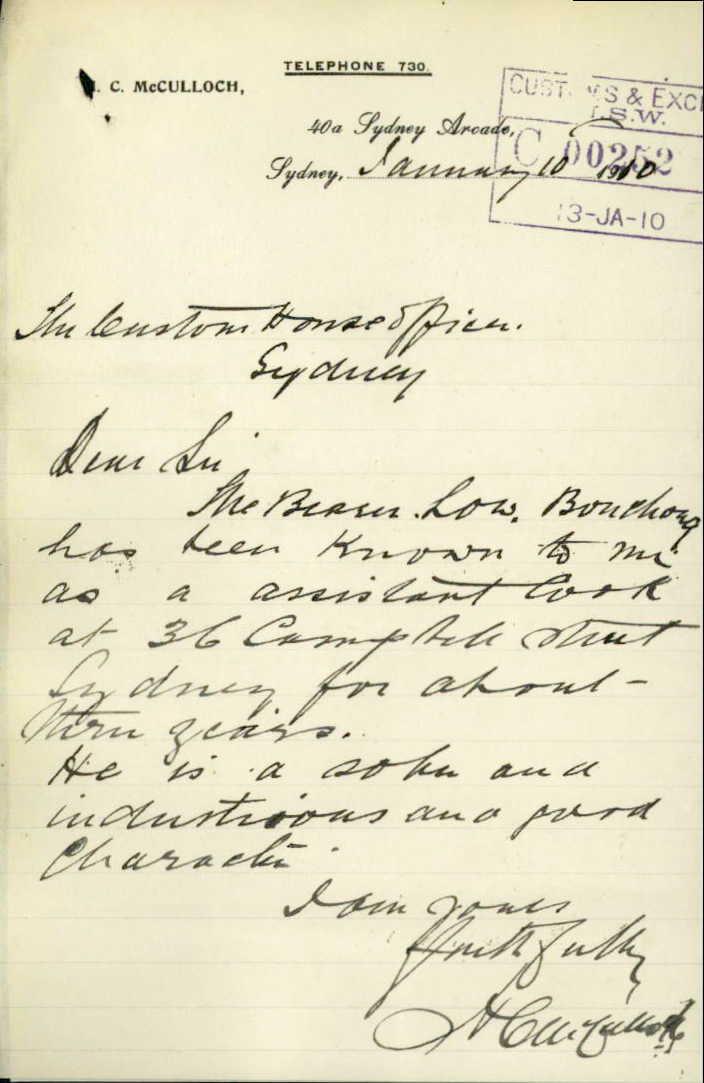 TELEPHONE 730.
. C. McCULLOCH,
40a Sydney Arcade,
Sydney, January 10 1910
CUSTOMS & EXCI
N.S.W.
C 00252
13-JA-10
The Custom House Officer.
Sydney
Dear Sir
The Bearer Low. Bouchong
has been Known to me
as a assistant Cook
at 36 Campbell Street
Sydney for about
three years.
He is a sober and
industrious and good
Character.
I am yours
faithfully
C McCulloch